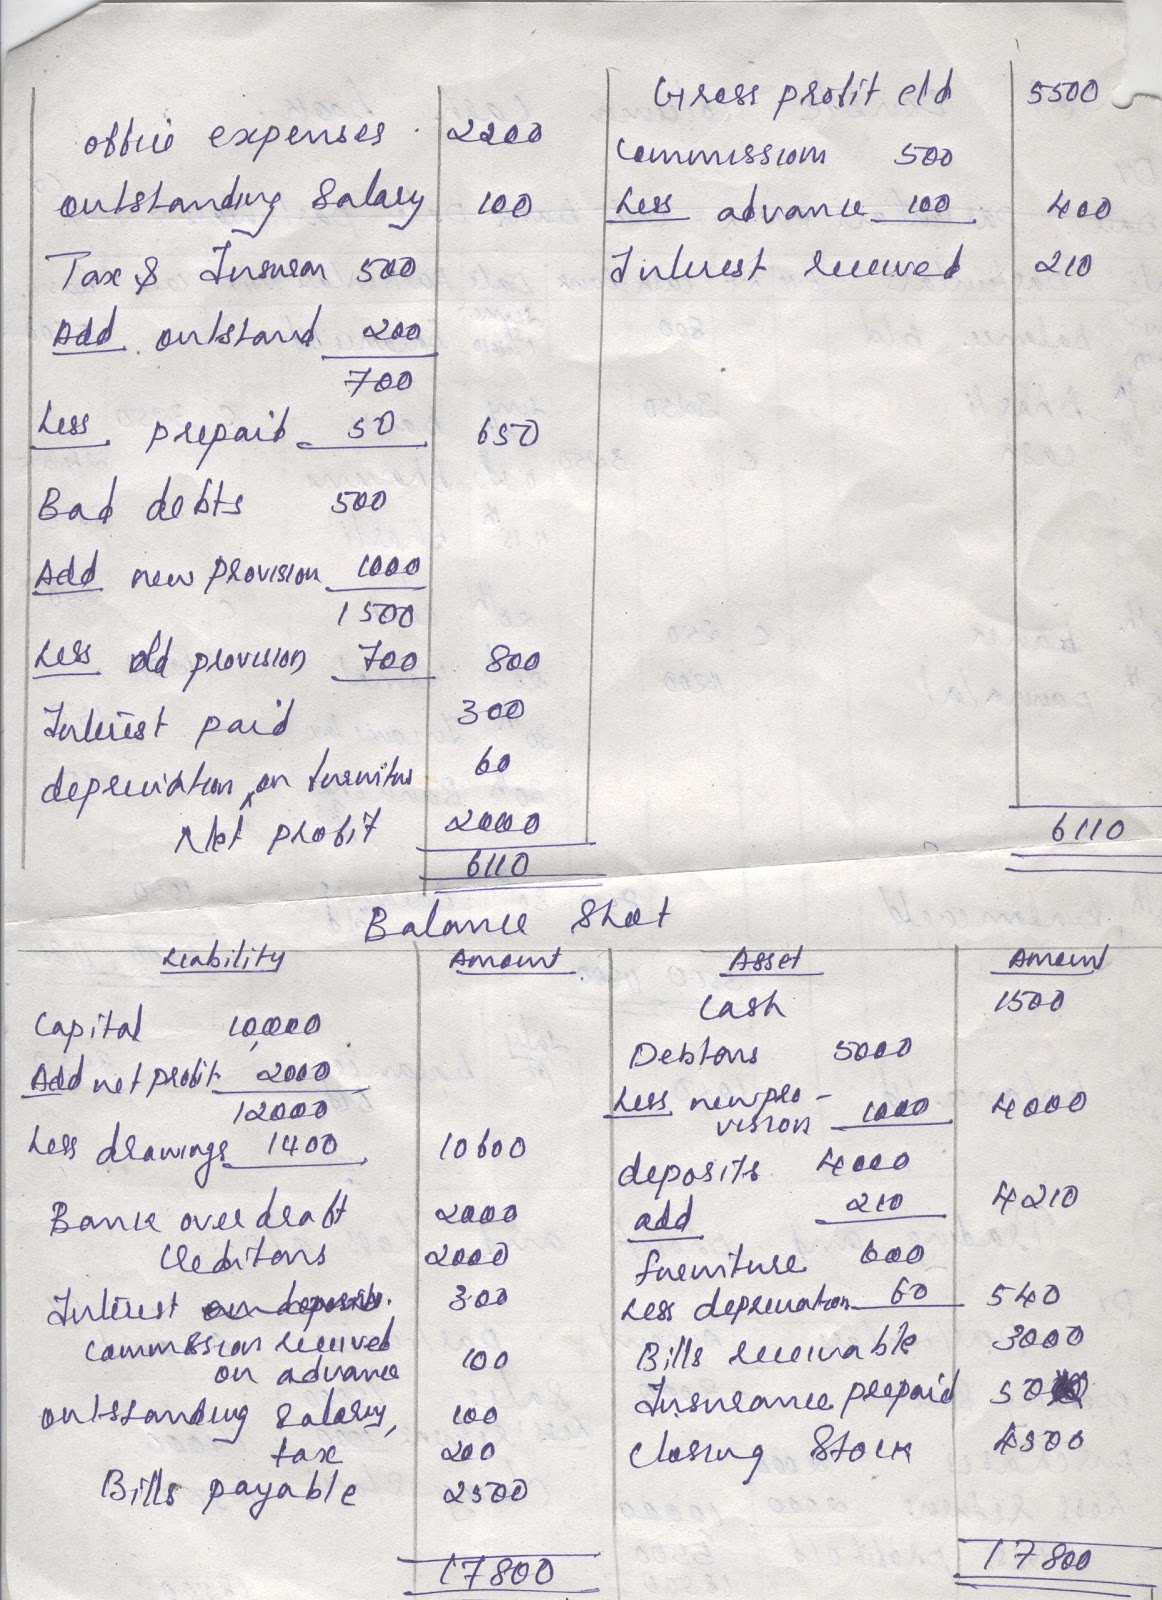 Gross profit cld 5500
office expenses 2200
Commission 500
outstanding salary 100
Less advance 100 400
Tax & Insuran 500
Interest received 210
Add outstand 200
700
Less prepaid 50 650
Bad debts 500
Add new provision 1000
1500
Less old provision 700 800
Interest paid 300
depreciation on furnitur 60
Net profit 2000
6110
6110
Balance Shet
Liability Amount Asset Amount
Cash 1500
Capital 10,000
Debtons 5000
Add net profit 2000
12000
Less new pro-
vision 1000 4000
Less drawings 1400 10600
deposits 4000
add 210 4210
Bank over draft 2000
Creditons 2000
furniture 600
Interest on deposits. 300
Less depreciation 60 540
Commission received
on advance 100
Bills receivable 3000
outstanding salary, 100
Insurance prepaid 50
tax 200
Closing Stock 4500
Bills payable 2500
17800
17800